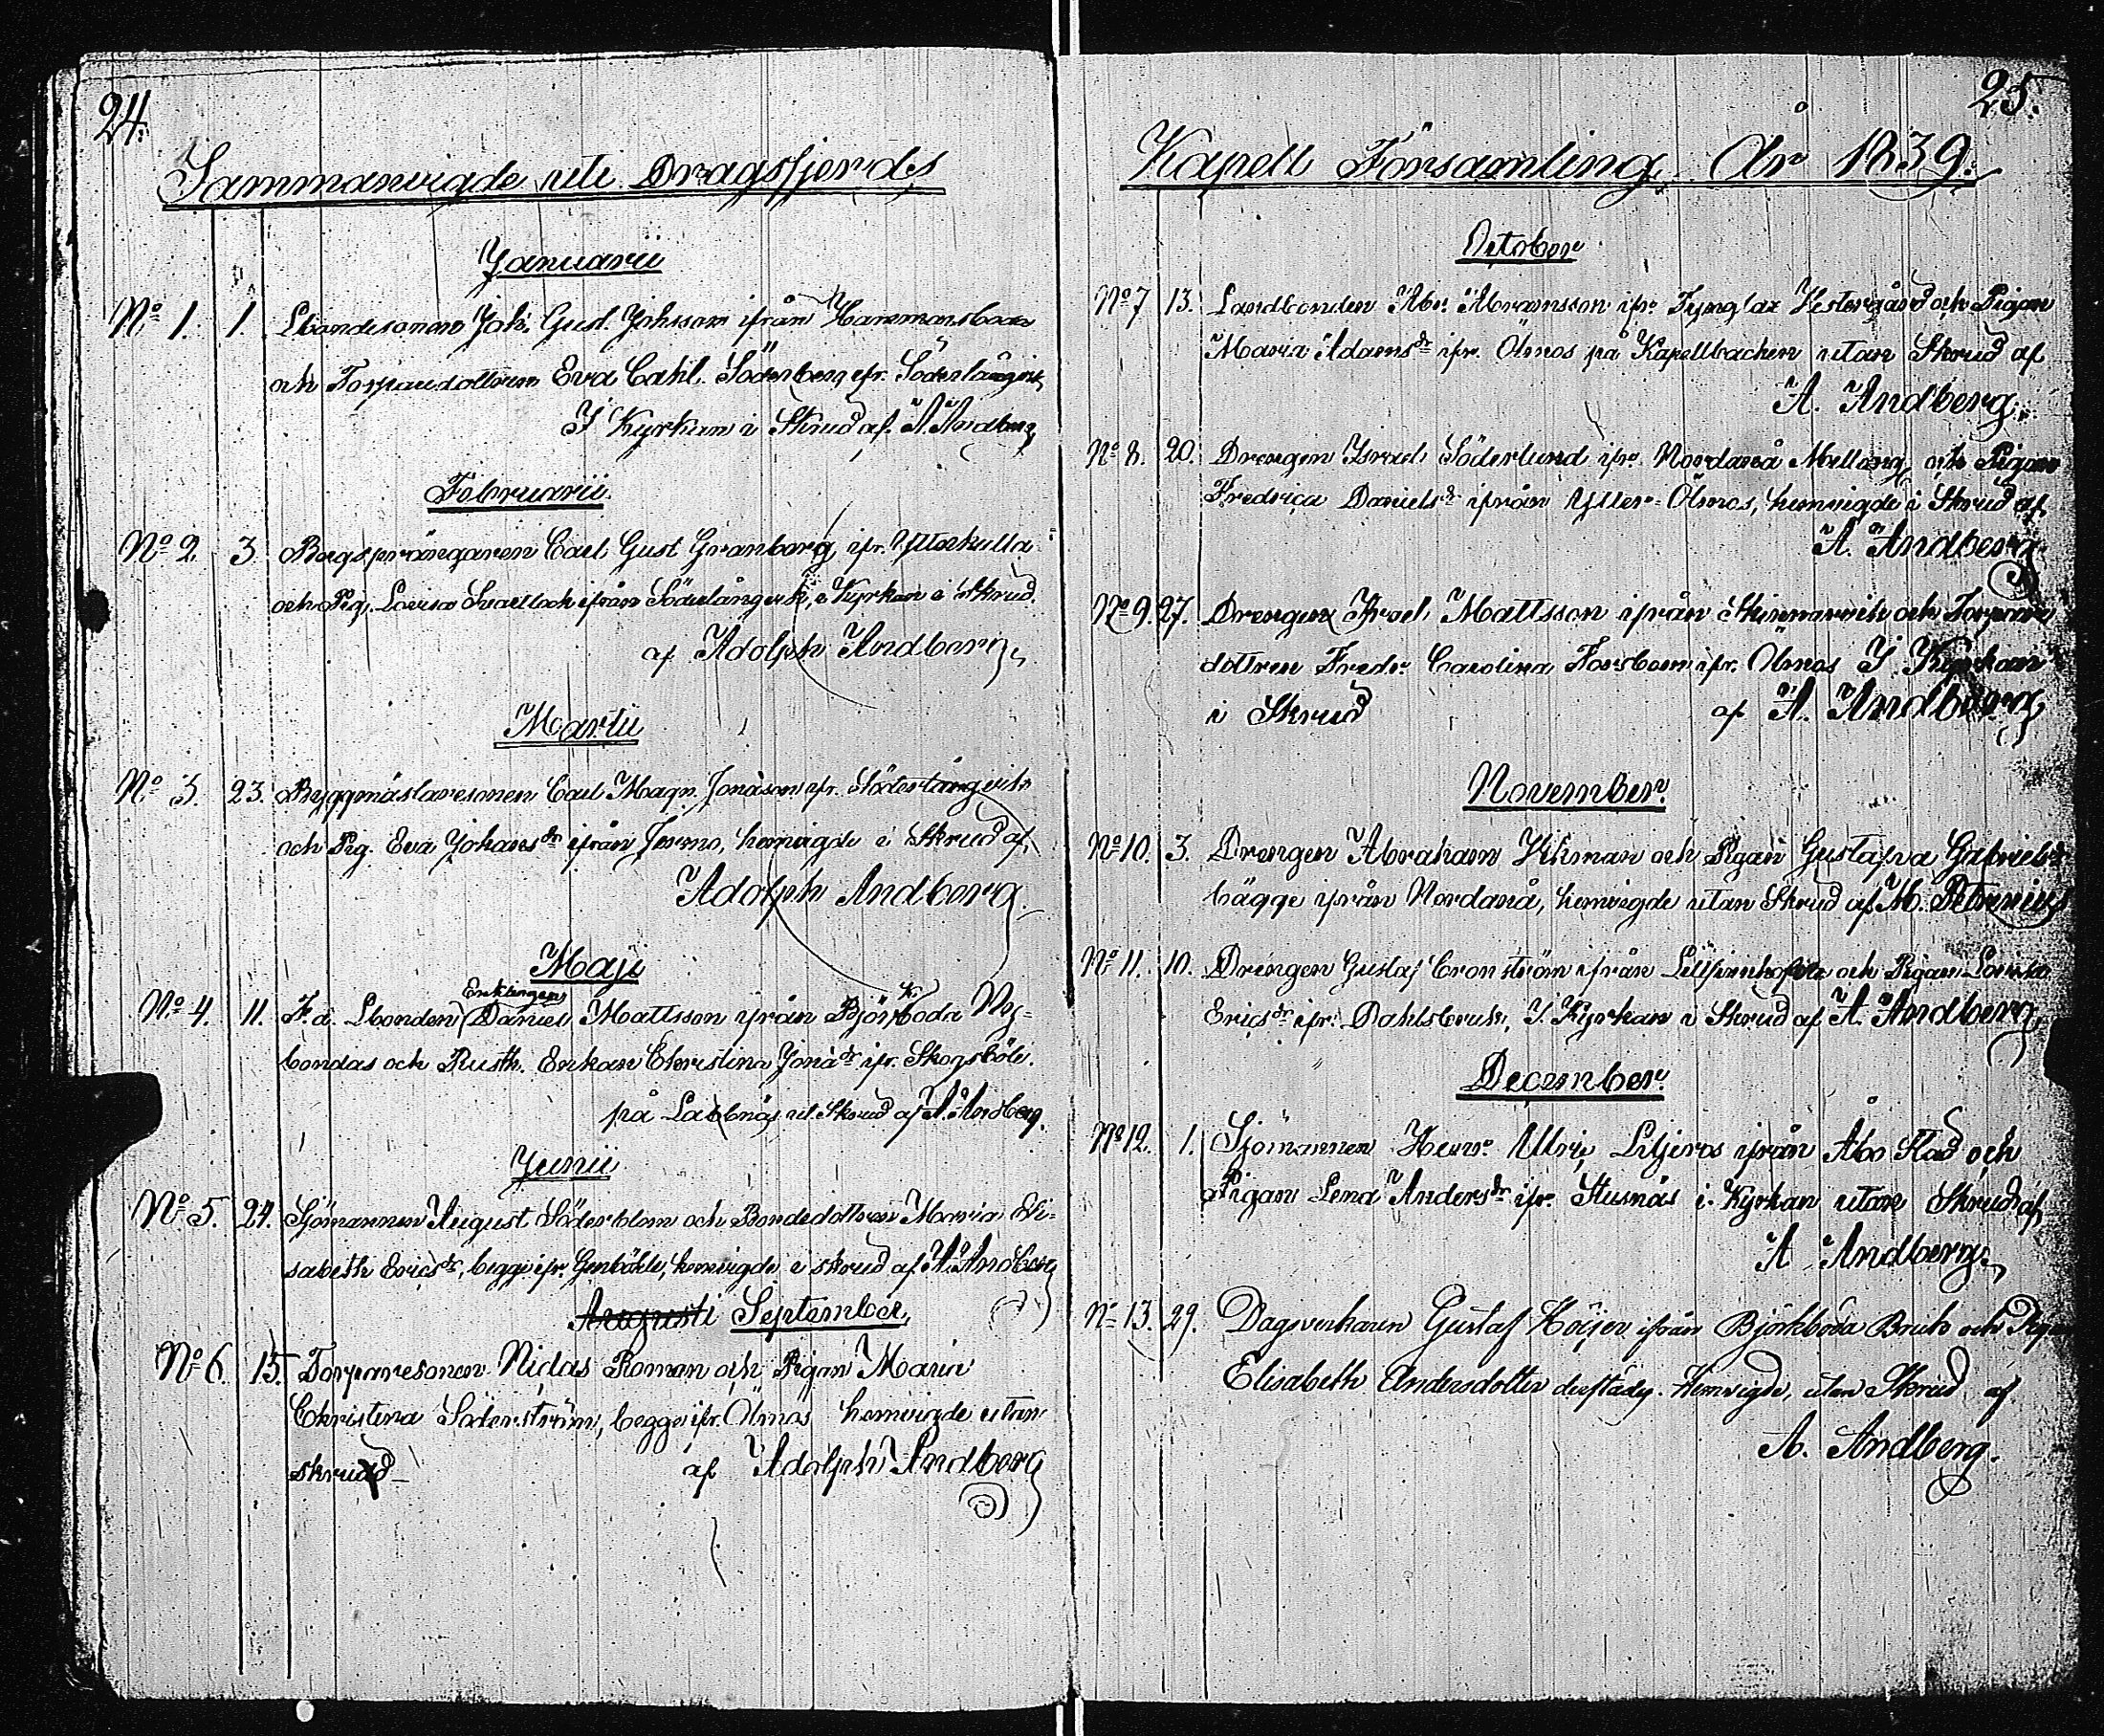 24.
Sammanvigde uti Dragsfjerds
Januarii
No 1. 1. Bondesonen Joh. Gust. Johsson ifrån Hammarsboda
och Torparedottren Eva Cath. Söderberg ifr. Söderlångvik
I Kyrkan i Skrud af A. Andberg
Februarii
No 2. 3. Bergsprängaren Carl Gust Granberg, ifr. Ytterkulla
och Pig. Lovisa ifrån Söderlångvik, i Kyrkan i Skrud.
af Adolph Andberg
Martii
No 3. 23. Byggmästaresonen Carl Magn. Jonasson ifr. Söderlångvik
och Pig. Eva Johansdr ifrån hemvigde i Skrud af
Adolph Andberg.
Maji
No 4. 11. F.d. Lbonden Enklingen Daniel Mattsson ifrån Björkboda Ny-
bondas och Rusth. Enkan Christina Jonasdr ifr. Skogsböle.
på ut. Skrud af A. Andberg.
Junii
No 5. 24. Sjömannen August Söderblom och Bondedottren Maria Eli-
sabeth Ericsdr, begge ifr. Genböle, hemvigde i skrud af A. Andberg
Augusti September
No 6. 15. Torparesonen Niclas Roman och Pigan Maria
Christina Söderström, begge ifr. Ölmos hemvigde utan
skrud — af Adolph Andberg
25.
Kapell Församling År 1839.
October
No 7 13. Landbonden Abr. Abramsson ifr. Tynglax Vestergård och Pigan
Maria Adamsdr ifr. Ölmos på Kapellbacken utan Skrud af
A. Andberg.
No 8. 20. Drengen Israel Söderlund ifr. Nordanå Mellang. och Pigan
Fredrica Danielsdr ifrån Ytter-Ölmos, hemvigde i Skrud af
A. Andberg.
No 9. 27. Drengen Israel Mattsson ifrån Skinnarvik och Torpare
dottren Fredr. Carolina Forsbom ifr. Ölmos I Kyrkan
i Skrud af A. Andberg
November.
No 10. 3. Drengen Abraham Vikman och Pigan Gustafva Gabrielsdr
bägge ifrån Nordanå, hemvigde utan Skrud af M. Petrenius
No 11. 10. Drengen Gustaf Cronström ifrån och Pigan Lovisa
Ericsdr ifr. Dahlsbruk, I Kyrkan i Skrud af A. Andberg
December.
No 12. 1. Sjömannen Henr. Ulric Litjeros ifrån Åbo Stad och
Pigan Lena Andersdr ifr. Stusnäs i Kyrkan utan Skrud af
A Andberg.
No 13. 29. Dagsverkaren Gustaf Höijer ifrån Björkboda Bruk och Pigan
Elisabeth Andersdotter derstädes. Hemvigde, utan Skrud af
A. Andberg.